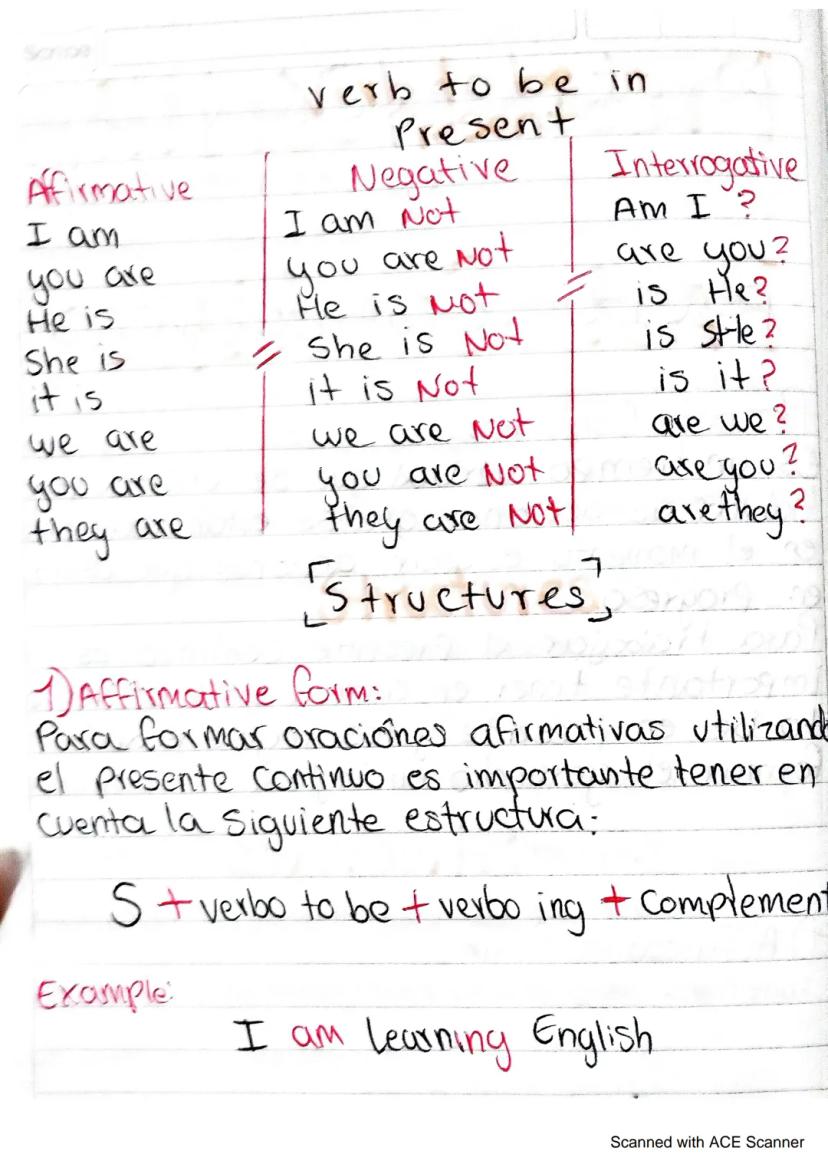 Scribe
verb to be in
Present
Affirmative
I am
you are
He is
She is
it is
we are
you are
they are
Negative
I am Not
you are Not
He is Not
She is Not
it is Not
we are Not
you are Not
they are Not
Interrogative
Am I ?
are you?
is He?
is SHe?
is it?
are we?
are you?
are they?
[Structures]
1) Affirmative form:
Para formar oraciónes afirmativas utilizand
el presente continuo es importante tener en
cuenta la siguiente estructura:
S + verbo to be + verbo ing + complement
Example:
I am learning English
Scanned with ACE Scanner